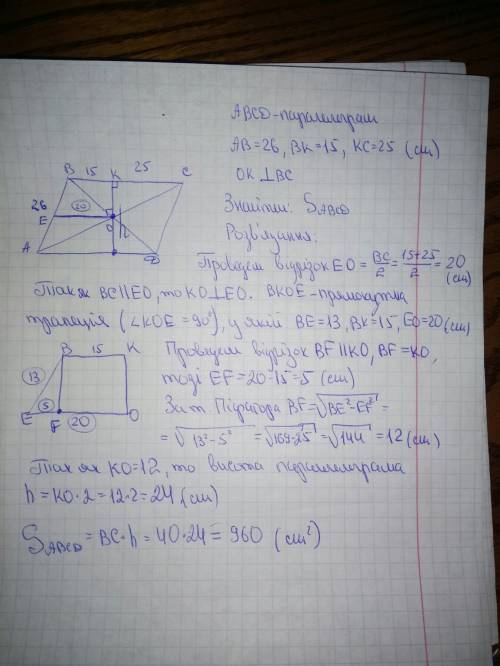 ABCD-паралелограм
AB=26, BK=15, KC=25 (см)
OK⊥BC
Знайти: S_ABCD
Розв'язання:
B 15 K 25 C
26 E 20 O h
A D
Проведем відрізок EO = BC/2 = (15+25)/2 = 20 (см)
Так як BC||EO, то KO⊥EO. BKOE-прямокутна
трапеція (∠KOE=90°), у якій BE=13, BK=15, EO=20 (см)
B 15 K
13
5
E F 20 O
Проведем відрізок BF||KO, BF=KO,
тоді EF=20-15=5 (см)
За т. Піфагора BF=√(BE²-EF²) =
=√(13²-5²) =√(169-25) =√144 =12 (см)
Так як KO=12, то висота паралелограма
h=KO·2=12·2=24 (см)
S_ABCD = BC·h = 40·24 = 960 (см²)